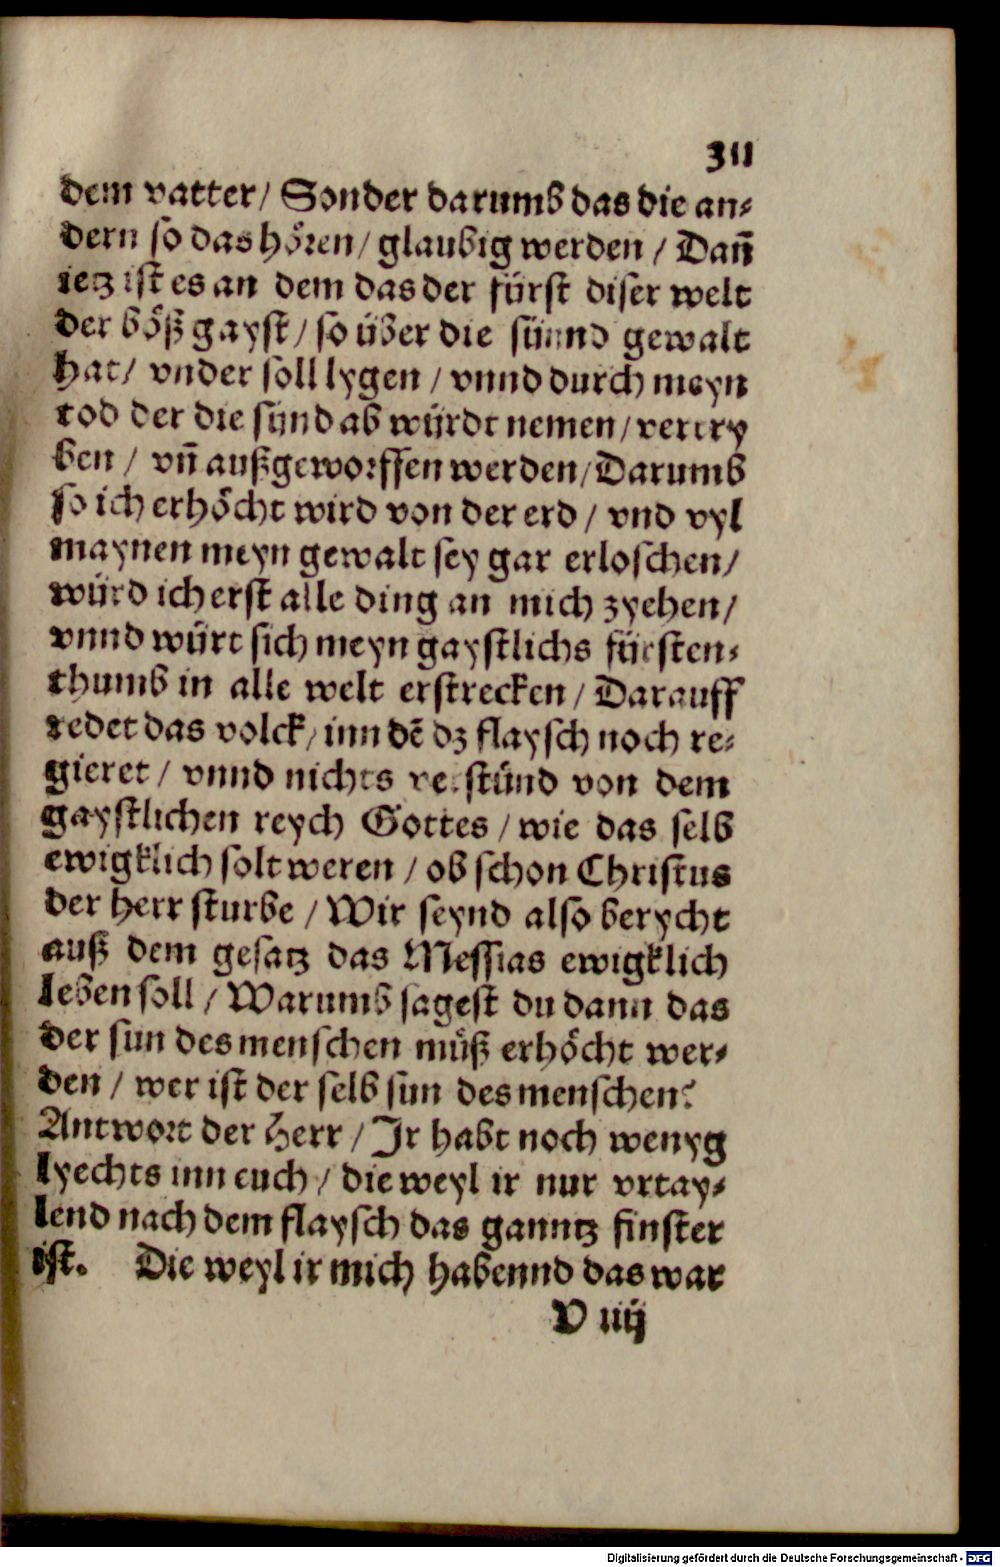 311
dem vatter / Sonder darumb das die an⸗
dern so das hören / glaubig werden / Dañ
ietz ist es an dem das der fürst diser welt
der böß gayst / so über die sünnd gewalt
hat / vnder soll lygen / vnnd durch meyn
tod der die sünd ab würdt nemen / vertry
ben / vñ außgeworffen werden / Darumb
so ich erhöcht wird von der erd / vnd vyl
maynen meyn gewalt sey gar erloschen /
würd ich erst alle ding an mich zyehen /
vnnd würt sich meyn gaystlichs fürsten⸗
thumb in alle welt erstrecken / Darauff
redet das volck / inn dē dz flaysch noch re⸗
gieret / vnnd nichts verstünd von dem
gaystlichen reych Gottes / wie das selb
ewigklich solt weren / ob schon Christus
der herr sturbe / Wir seynd also berycht
auß dem gesatz das Messias ewigklich
leben soll / Warumb sagest du dann das
der sun des menschen müß erhöcht wer⸗
den / wer ist der selb sun des menschen?
Antwort der Herr / Jr habt noch wenyg
lyechts inn euch / die weyl ir nur vrtay⸗
lend nach dem flaysch das ganntz finster
ist. Die weyl ir mich habennd das war
V iiij
Digitalisierung gefördert durch die Deutsche Forschungsgemeinschaft - DFG